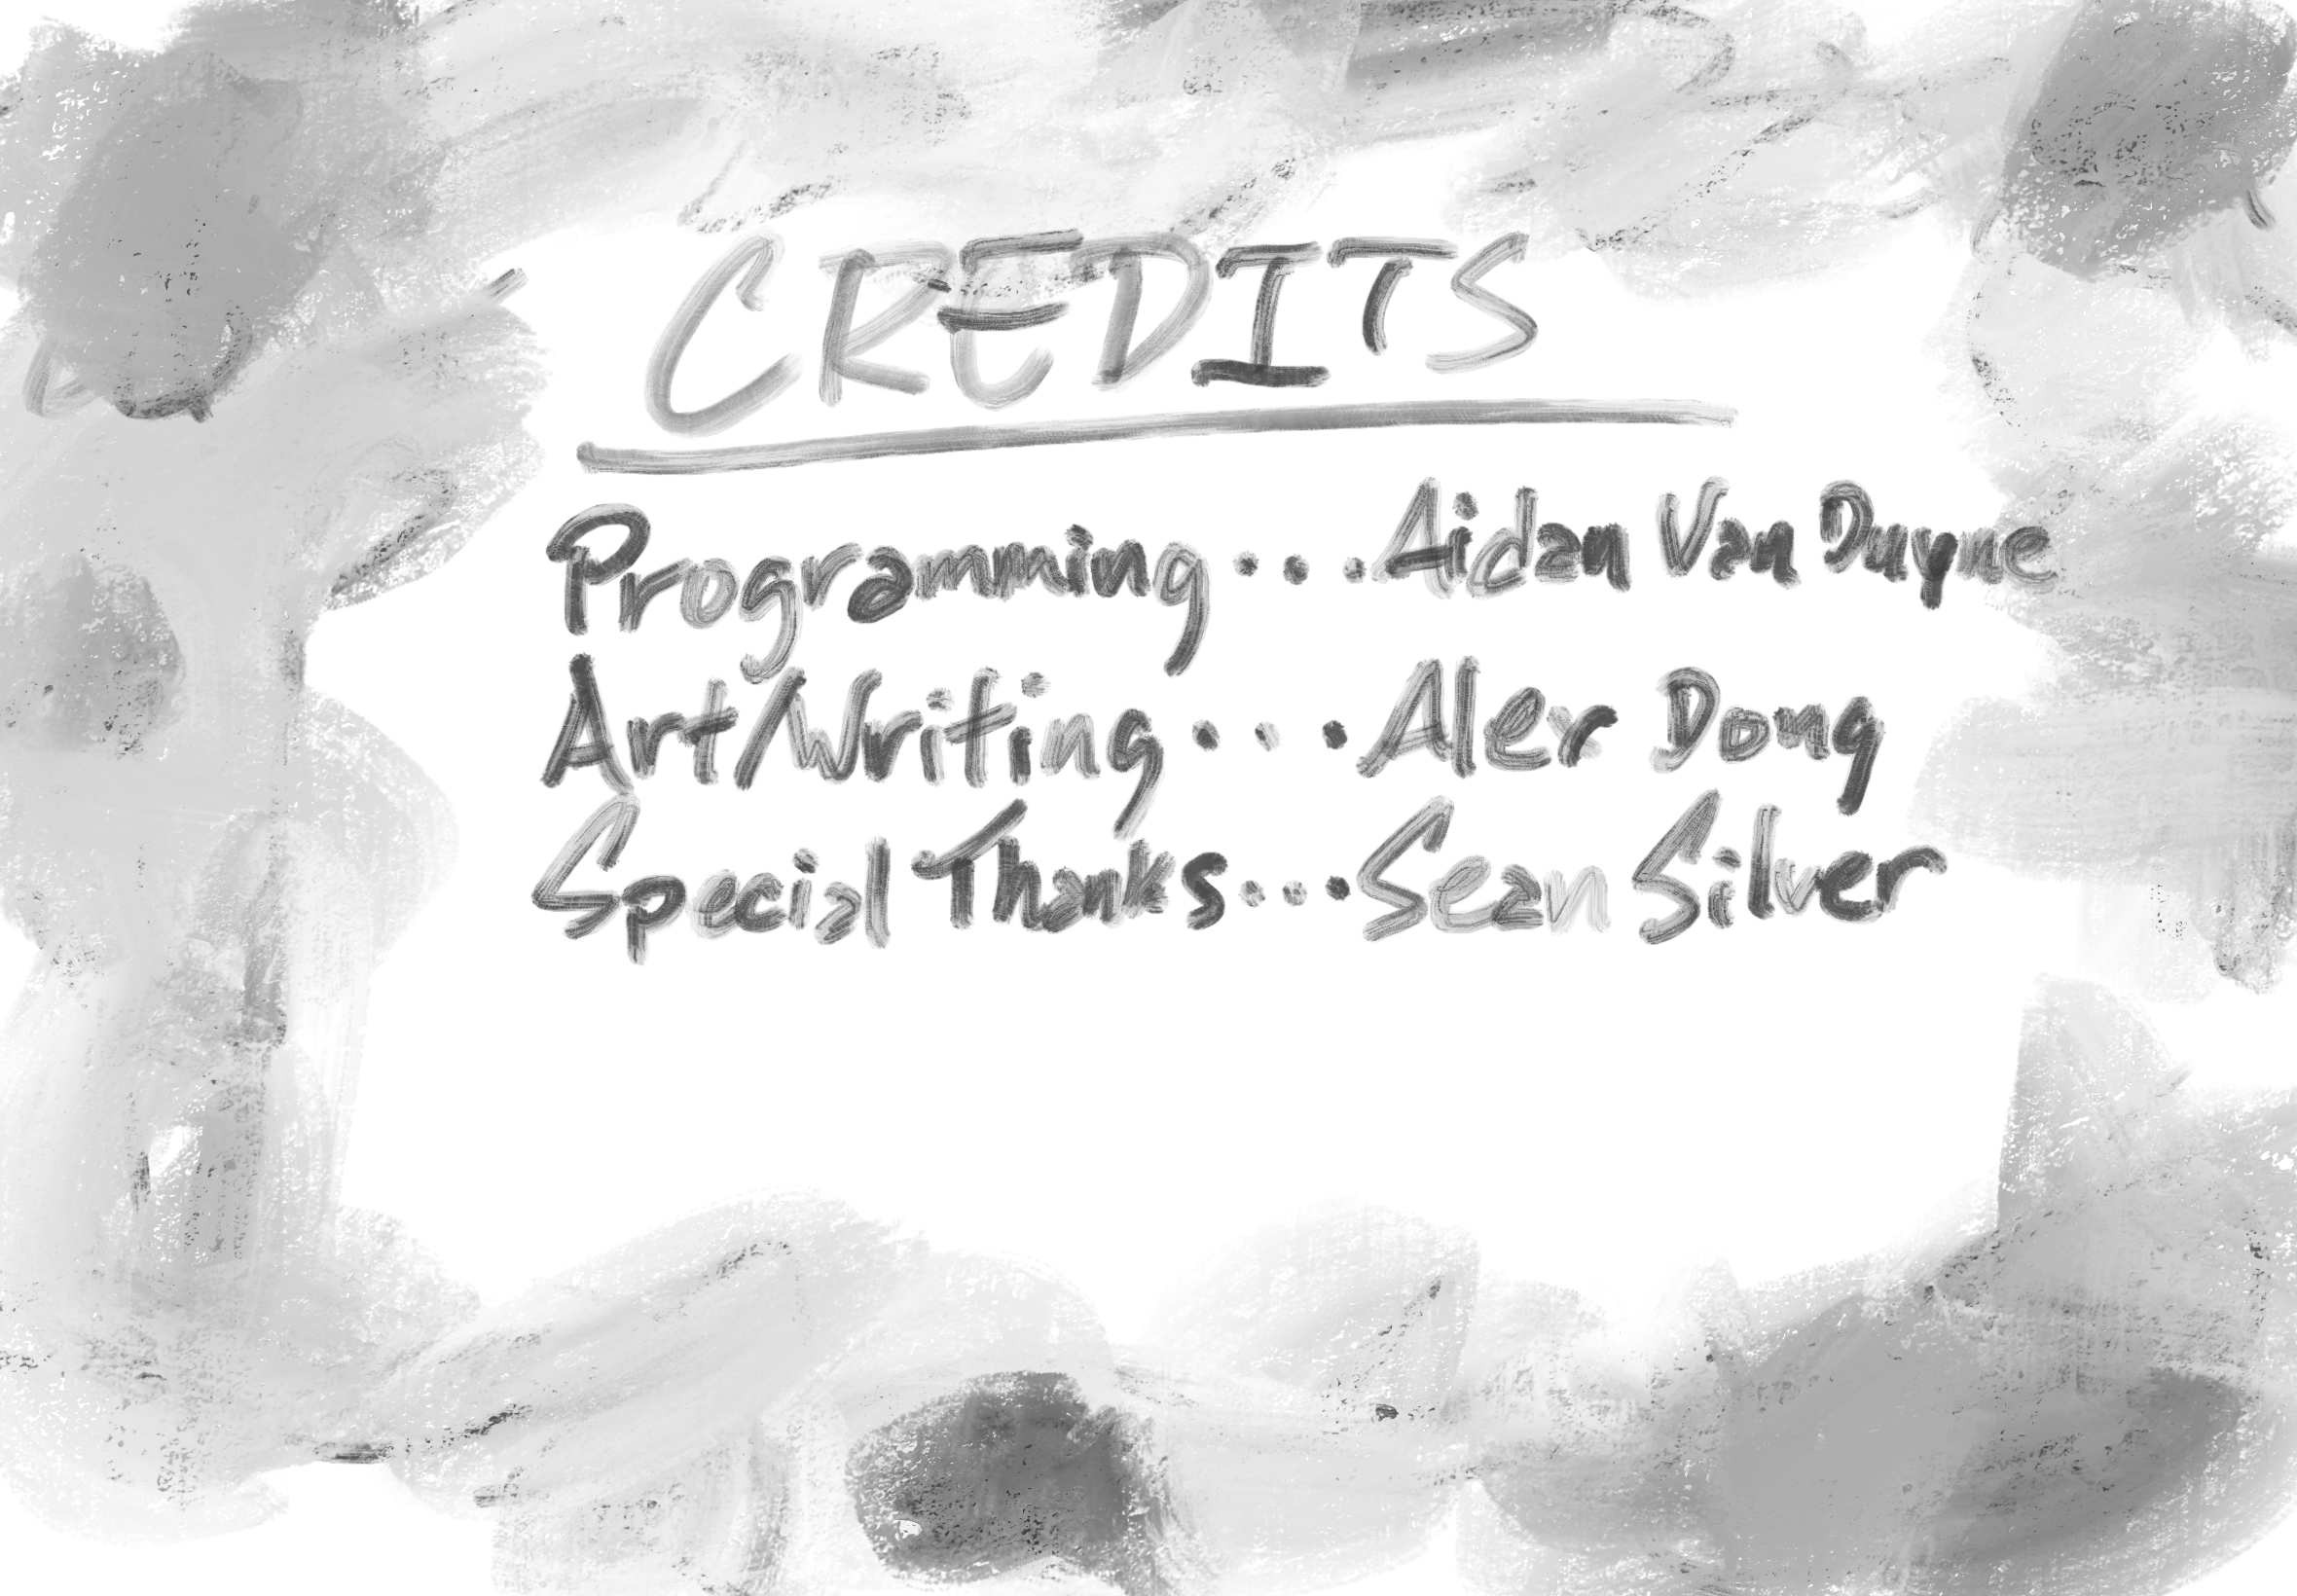 CREDITS
Programming...Aidan Van Duyne
Art/Writing...Alex Dong
Special Thanks...Sean Silver